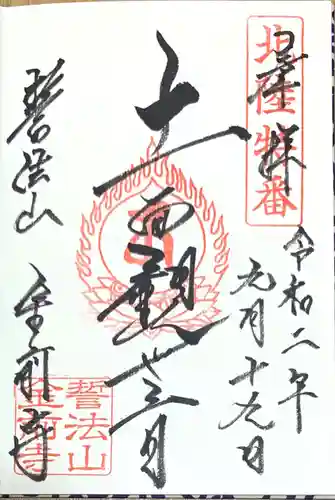 奉拝
北陸特番
令和二年
九月十九日
十一面観世音
誓法山 金前寺
誓法山
金前寺